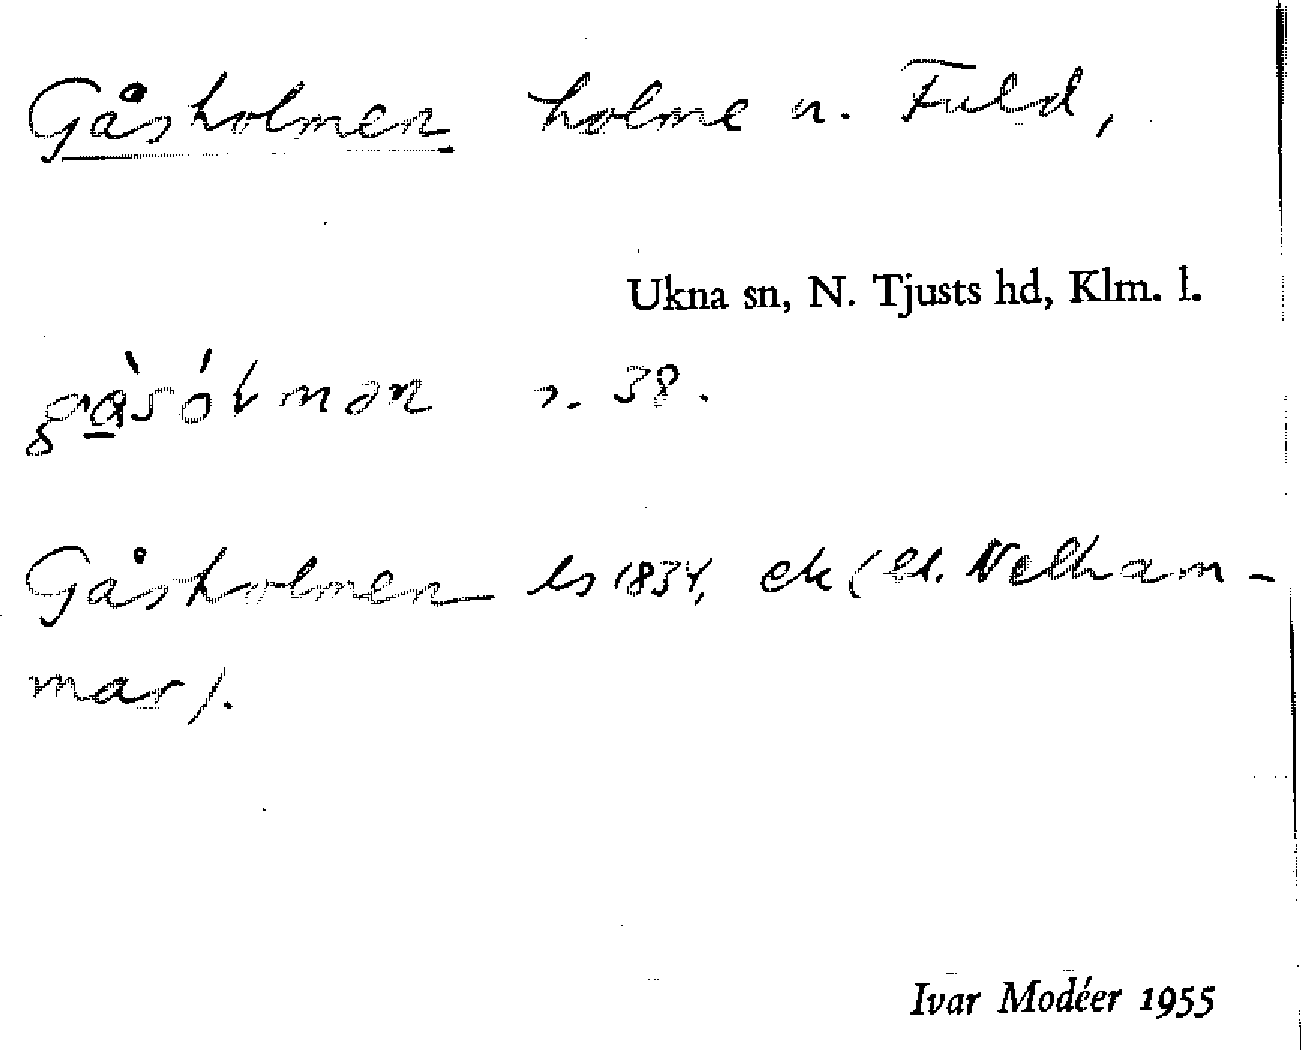 Gåsholmen holme n. Fuld,
Ukna sn, N. Tjusts hd, Klm. l.
gå̀sólmən s. 38.
Gåsholmen ls 1834, ek (Ek. Nelham-
mar).
Ivar Modéer 1955